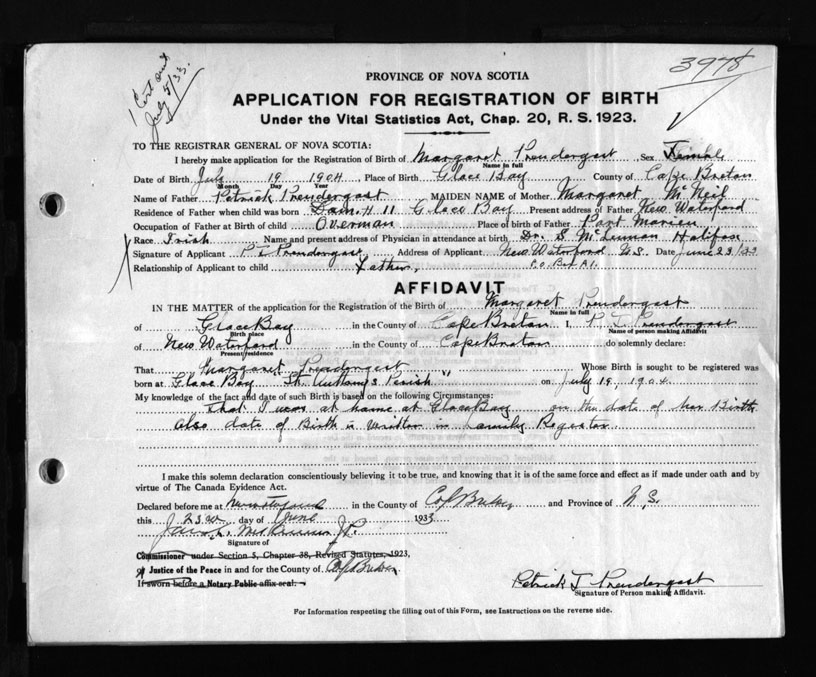 1 Cert
July 5/33.
3978
PROVINCE OF NOVA SCOTIA
APPLICATION FOR REGISTRATION OF BIRTH
Under the Vital Statistics Act, Chap. 20, R. S. 1923.
TO THE REGISTRAR GENERAL OF NOVA SCOTIA:
I hereby make application for the Registration of Birth of Margaret Prendergast Sex Female
Name in full
Date of Birth July 19 1904 Place of Birth Glace Bay County of Cape Breton
Month Day Year
Name of Father Patrick Prendergast MAIDEN NAME of Mother Margaret McNeil
Residence of Father when child was born Dam # 11 Glace Bay Present address of Father New Waterford
Occupation of Father at Birth of child Overman Place of birth of Father Port Morien
Race Irish Name and present address of Physician in attendance at birth Dr. S. Halifax
Signature of Applicant P T Prendergast Address of Applicant New Waterford N.S. Date June 23/33
Relationship of Applicant to child Father P.O. Box A1.
AFFIDAVIT
IN THE MATTER of the application for the Registration of the Birth of Margaret Prendergast
Name in full
of Glace Bay in the County of Cape Breton I, P. T. Prendergast
Birth place Name of person making Affidavit
of New Waterford in the County of Cape Breton do solemnly declare:
Present residence
That Margaret Prendergast Whose Birth is sought to be registered was
born at Glace Bay St Anthony's Parish " on July 19, 1904
My knowledge of the fact and date of such Birth is based on the following Circumstances:
That I was at home at Glace Bay on the date of her Birth
Also date of Birth is written in Family Register.
I make this solemn declaration conscientiously believing it to be true, and knowing that it is of the same force and effect as if made under oath and by
virtue of The Canada Evidence Act.
Declared before me at New Waterford in the County of Cape Breton and Province of N. S.
this 23rd day of June 1933
J.P.
Signature of
Commissioner under Section 5, Chapter 38, Revised Statutes, 1923,
or Justice of the Peace in and for the County of Cape Breton
If sworn before a Notary Public affix seal.
Patrick T Prendergast
Signature of Person making Affidavit.
For Information respecting the filling out of this Form, see Instructions on the reverse side.